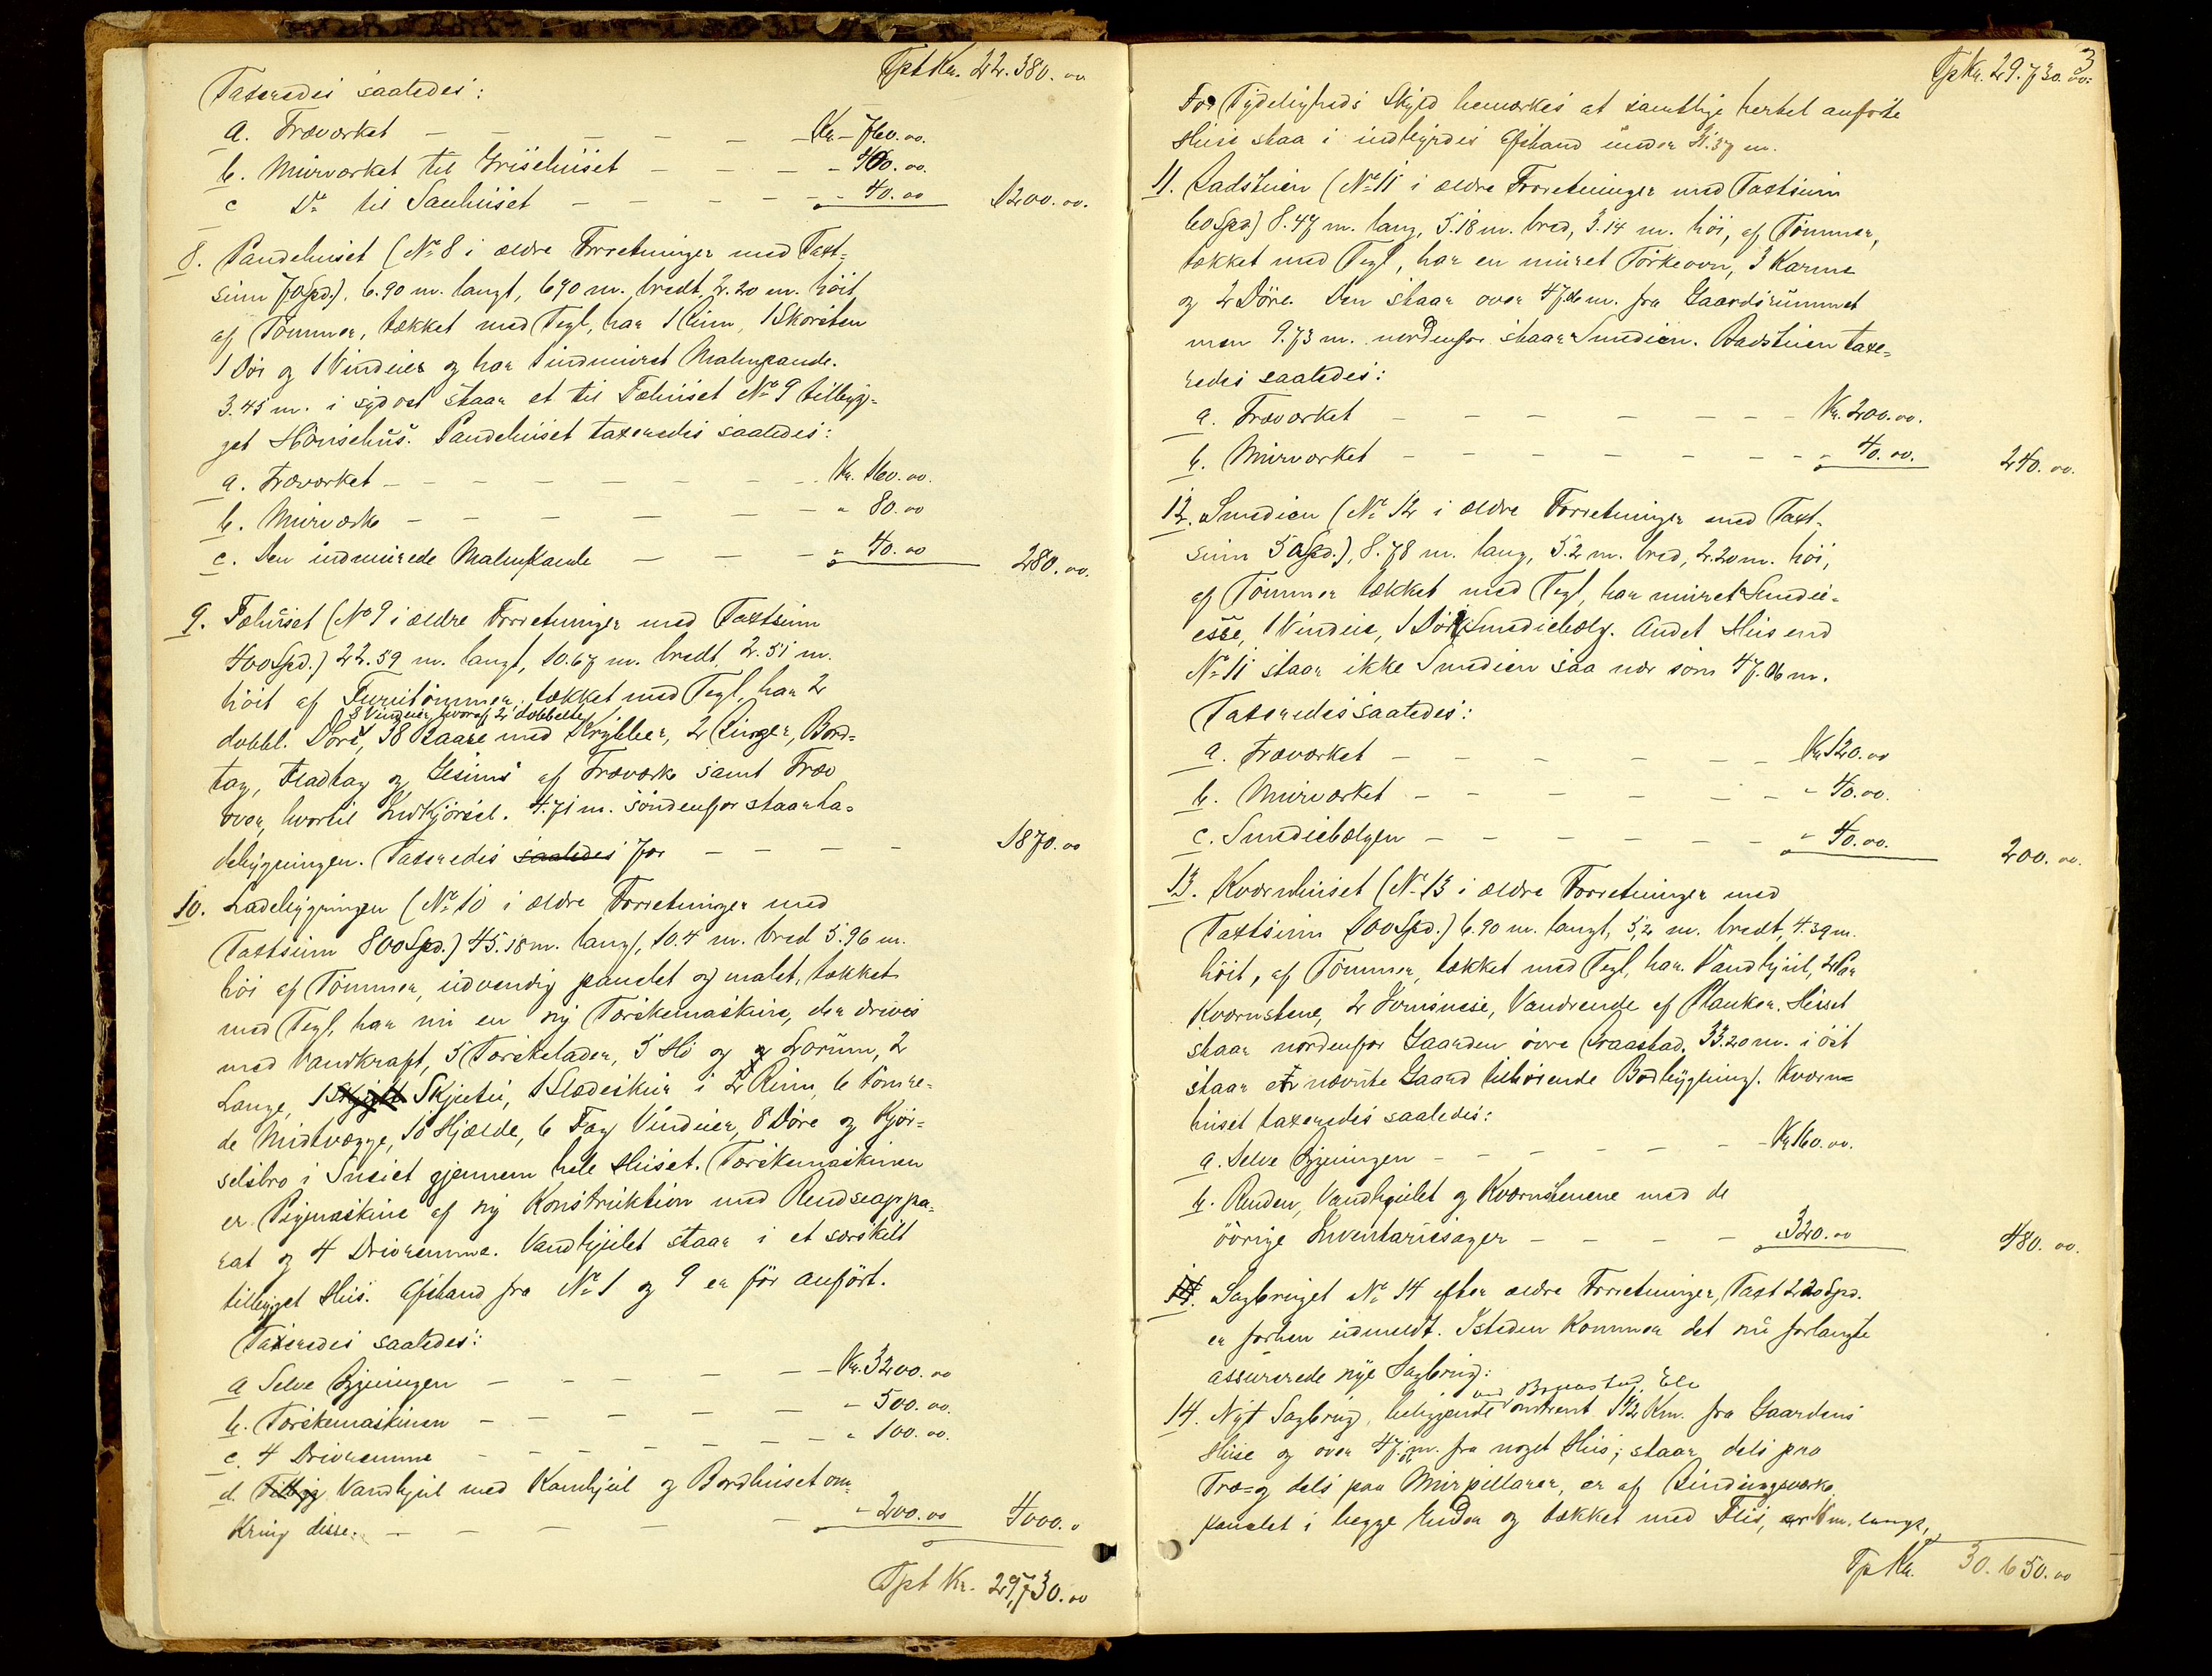 Tpt Kr. 22.380.00
Taxeredes saaledes:
a. Træværket – – – – – Kr. 760.00.
b. Murværket til Grisehuset – – – – 400.00.
c Do til Sauhuset – – – – – " 40.00 1200.00.
8. Pandehuset (No 8 i ældre Forretninger med Taxt-
sum 70 Spd.), 6.90 m. langt, 6.90 m. bredt, 2.20 m. höit
af Tömmer, tækket med Tegl, har 1 Rum, 1 Skorsten
1 Dör og 1 Vindue og har 1 indmuret Malmpande.
3.45 m. i sydost staar et til Fæhuset No 9 tilbyg-
get Hönsehus. Pandehuset taxeredes saaledes:
a. Træværket – – – – – – – Kr. 160.00.
b. Murværk – – – – – – " 80.00
c. Den indmurede Malmpande – – – " 40.00 280.00.
9. Fæhuset (No 9 i ældre Forretninger med Taxtsum
400 Spd.) 22.59 m. langt, 10.67 m. bredt, 2.51 m.
höit af Furutömmer, tækket med Tegl, har 2
8 Vinduer, hvoraf 2 dobbelte
dobbl. Döre, 38 Baase med Krybber, 2 Binger, Bord-
tag, Fladtag og Gesims af Træværk samt Træv
over, hvortil Indkjörsel. 4.71 m. söndenfor staar La-
debygningen. Taxeredes saaledes for – – – – 1870.00
10. Ladebygningen (No 10 i ældre Forretninger med
Taxtsum 800 Spd.) 45.18 m. lang, 10.4 m. bred 5.96 m.
höi af Tömmer, udvendig panelet og malet, tækket
med Tegl, har nu en ny Tærskemaskine, der drives
med Vandkraft, 5 Tærskelader, 5 Hö og Lörum, 2
Lange, 1 Skjutu, 1 Slædeskur i 2 Rum, 6 tömre-
de Midtvægge, 10 Hjælde, 6 Fag Vinduer, 8 Döre og Kjör-
selsbro i Sneset gjennem hele Huset. Tærskemaskinen
er Pigmaskine af ny Konstruktion med Rendseappa-
rat og 4 Drivremme. Vandhjulet staar i et særskilt
tilbygget Hus. Afstand fra No 1 og 9 er för anfört.
Taxeredes saaledes:
a Selve Bygningen – – – – – – Kr. 3200.00
b. Tærskemaskinen – – – – – – " 500.00.
c. 4 Drivremme – – – – – – " 100.00.
d. Tilbyg Vandhjul med Kamhjul og Bordhuset om-
kring disse. – – – – – " 200.00 4000.0
Tpt Kr. 29,730.00
3
Tp Kr. 29.730.00.
For Tydeligheds Skyld bemærkes at samtlige hertil anförte
Huse staa i indbyrdes Afstand under 31.37 m.
11. Badstuen (No 11 i ældre Forretninger med Taxtsum
60 Spd) 8.47 m. lang, 5.18 m. bred, 3.14 m. höi, af Tömmer,
tækket med Tegl, har en muret Törkeovn, 3 Karme
og 2 Döre. Den staar over 47.06 m. fra Gaardsrummet
men 9.73 m. nordenfor staar Smedien. Badstuen taxe-
redes saaledes:
a. Træværket – – – – – – – Kr. 200.00.
b. Murværket – – – – – – – " 40.00. 240.00.
12. Smedien (No 12 i ældre Forretninger med Taxt-
sum 50 Spd.), 8.78 m. lang, 5.2 m. bred, 2.20 m. höi,
af Tömmer tækket med Tegl, har muret Smedie-
esse, 1 Vindue, 1 Dör, Smediebælg. Andet Hus end
No 11 staar ikke Smedien saa nær som 47.06 m.
Taxeredes saaledes:
a. Træværket – – – – – – Kr 120.00
b. Murværket – – – – – – " 40.00.
c. Smediebælgen – – – – – – " 40.00. 200.00.
13. Kværnhuset (No 13 i ældre Forretninger med
Taxtsum 100 Spd.) 6.90 m. langt, 5,2 m. bredt, 4.39 m.
höit, af Tömmer, tækket med Tegl, har Vandhjul, 2 Par
Kværnstene, 2 Vandrende af Planker. Huset
staar nordenfor Gaarden övre Braastad. 33.20 m. i öst
staar en nævnte Gaard tilhörende Bodbygning. Kværn-
huset taxeredes saaledes:
a. Selve Bygningen – – – – – – Kr 160.00.
b. Renden, Vandhjulet og Kværnstenene med de
övrige Inventariesager – – – – 320.00 480.00.
14. Sagbruget No 14 efter ældre Forretninger, Taxt 220 Spd.
er forhen udmeldt. Isteden kommer det nu forlangte
assurerede nye Sagbrug:
ved Braastad Elv
14. Nyt Sagbrug, beliggende omtrent 1 1/2 Km. fra Gaardens
Huse og over 47.06 m. fra noget Hus; staar dels paa
Træ- og dels paa Murpillarer, er af Bindingsværk
panelet i begge Ender og tækket med Flis, er m. langt,
Tp Kr. 30.650.00